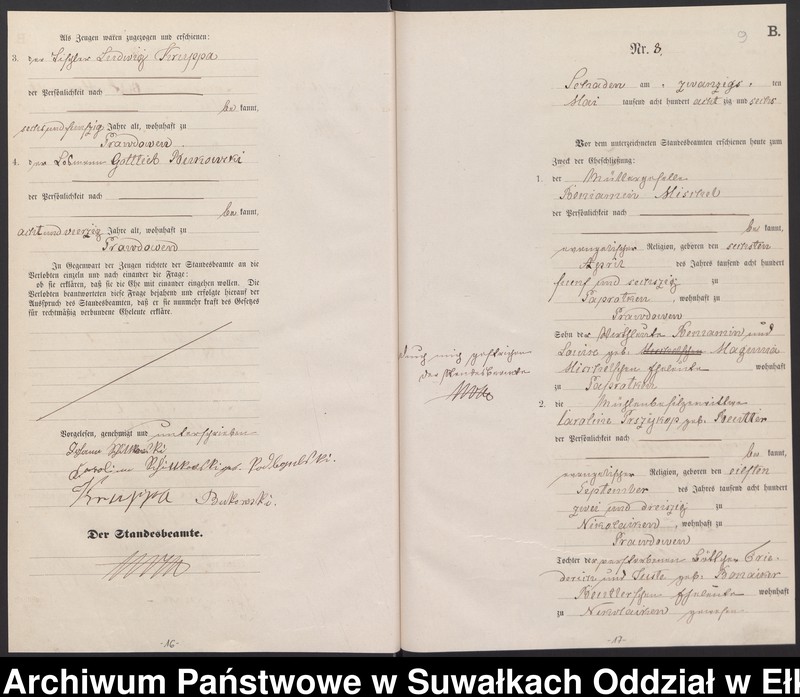 Als Zeugen waren zugezogen und erschienen:
3. der Tischler Ludwig Kruppa
der Persönlichkeit nach
be kannt,
sechsundfunfzig Jahre alt, wohnhaft zu
Prawdowen.
4. der Losmann Gottlieb Burkowski
der Persönlichkeit nach
be kannt,
acht und vierzig Jahre alt, wohnhaft zu
Prawdowen
In Gegenwart der Zeugen richtete der Standesbeamte an die
Verlobten einzeln und nach einander die Frage:
ob sie erklären, daß sie die Ehe mit einander eingehen wollen. Die
Verlobten beantworteten diese Frage bejahend und erfolgte hierauf der
Ausspruch des Standesbeamten, daß er sie nunmehr kraft des Gesetzes
für rechtmäßig verbundene Eheleute erkläre.
Vorgelesen, genehmigt und unterschrieben
Kruppa Bukowski.
Der Standesbeamte.
-16-
9 B.
Nr. 8.
Schaden am zwanzigs ten
Mai tausend acht hundert acht zig und sechs
Vor dem unterzeichneten Standesbeamten erschienen heute zum
Zweck der Eheschließung:
1. der Müllergeselle
Benjamin
der Persönlichkeit nach
be kannt,
evangelischer Religion, geboren den sechsten
April des Jahres tausend acht hundert
fuenf und sechszig zu
Paprotken, wohnhaft zu
Prawdowen
Sohn der Wirthsleute Benjamin und
Louise geb.
Eheleute wohnhaft
zu Paprotken
durch mich gestrichen
der Standesbeamte
2. die Mühlenbesitzerwittwe
Caroline geb. Reutter
der Persönlichkeit nach
be kannt,
evangelischer Religion, geboren den elften
September des Jahres tausend acht hundert
zwei und dreizig zu
Nikolaiken, wohnhaft zu
Prawdowen
Tochter der verstorbenen Böttcher Frie-
drich und geb.
Eheleute wohnhaft
zu Nikolaiken gewesen
-17-
Archiwum Państwowe w Suwałkach Oddział w Eł